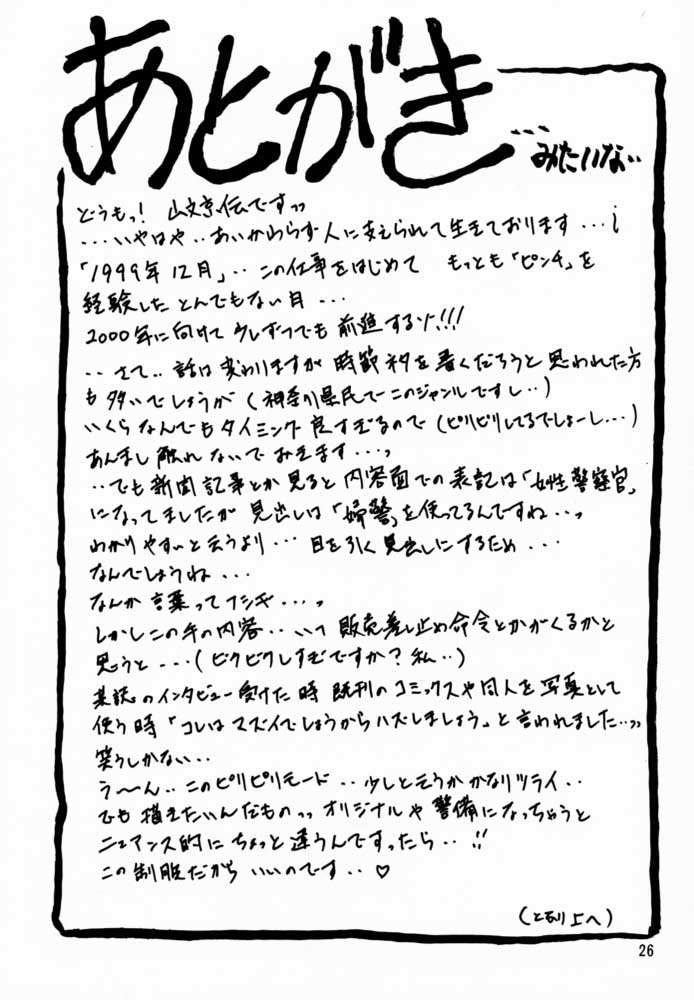 あとがき
…みたいな…
どうもっ! 山文京伝ですっっ
…いやはや‥あいかわらず人に支えられて生きております…¡
「1999年12月」‥この仕事をはじめて もっとも「ピンチ」を
経験したとんでもない月…
2000年に向けて少しずつでも前進するゾ!!!
‥さて‥話は変わりますが時節ネタを書くだろうと思われた方
も多いでしょうが(神奈川県民でこのジャンルですし‥)
いくらなんでもタイミング良すぎるので(ピリピリしてるでしょーし…)
あんまし触れないでおきます…っ
‥でも新聞記事とか見ると内容面での表記は「女性警察官」
になってましたが見出しは「婦警」を使ってるんですね…っ
わかりやすいと云うより…目を引く見出しにするため…
なんでしょうね…
なんか言葉ってフシギ…っ
しかしこの手の内容‥いつ販売差し止め命令とかがくるかと
思うと…(ビクビクしすぎですか?私‥)
某誌のインタビュー受けた時既刊のコミックスや同人を写真として
使う時「コレはマズイでしょうからハズしましょう」と言われました…っっ
笑うしかない‥
う〜ん‥このピリピリモード‥少しと云うかかなりツライ‥
でも描きたいんだものっっオリジナルや警備になっちゃうと
ニュアンス的にちょっと違うんですったら‥!!
この制服だから いいのです‥♡
(となり上へ)
26